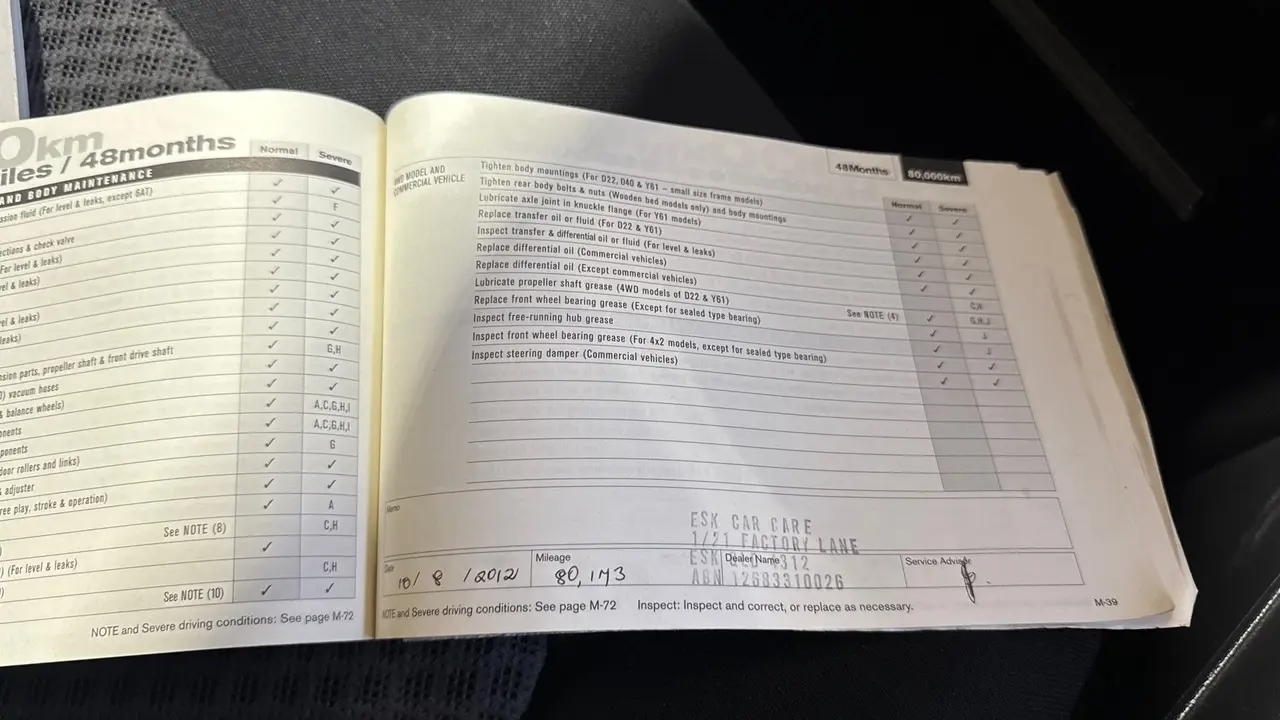 0km
iles / 48months
Normal Severe
AND BODY MAINTENANCE
ssion fluid (For level & leaks, except GAT) ✓ ✓
✓ F
ections & check valve ✓ ✓
For level & leaks) ✓ ✓
el & leaks) ✓ ✓
✓ ✓
vel & leaks) ✓ ✓
leaks) ✓ ✓
✓ G,H
nsion parts, propeller shaft & front drive shaft ✓ ✓
) vacuum hoses ✓ ✓
& balance wheels) ✓ A,C,G,H,I
onents ✓ A,C,G,H,I
ponents ✓ G
door rollers and links) ✓ ✓
& adjuster ✓ ✓
ree play, stroke & operation) ✓ A
See NOTE (8) C,H
) ✓
) (For level & leaks) C,H
) See NOTE (10) ✓ ✓
NOTE and Severe driving conditions: See page M-72
48Months 80,000km
WD MODEL AND
COMMERCIAL VEHICLE
Normal Severe
Tighten body mountings (For D22, D40 & Y61 – small size frame models) ✓ ✓
Tighten rear body bolts & nuts (Wooden bed models only) and body mountings ✓ ✓
Lubricate axle joint in knuckle flange (For Y61 models) ✓ ✓
Replace transfer oil or fluid (For D22 & Y61) ✓ ✓
Inspect transfer & differential oil or fluid (For level & leaks) ✓ ✓
Replace differential oil (Commercial vehicles) C,H
Replace differential oil (Except commercial vehicles) See NOTE (4) ✓ G,H,J
Lubricate propeller shaft grease (4WD models of D22 & Y61) ✓ J
Replace front wheel bearing grease (Except for sealed type bearing) ✓ J
Inspect free-running hub grease ✓ ✓
Inspect front wheel bearing grease (For 4x2 models, except for sealed type bearing) ✓ ✓
Inspect steering damper (Commercial vehicles)
Memo
ESK CAR CARE
1/21 FACTORY LANE
ESK 312
ABN 12683310026
Date 10/8/2012
Mileage 80,173
Dealer Name
Service Advisor
NOTE and Severe driving conditions: See page M-72 Inspect: Inspect and correct, or replace as necessary.
M-39